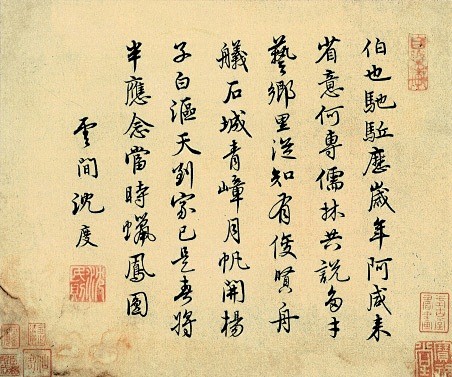 伯也馳駈歷歲年阿咸来
省意何專儒林共說多才
藝鄉里從知有俊賢舟
艤石城青嶂月帆開楊
子白漚天到家已是春將
半應念當時蠟鳳圓
雲間沈度